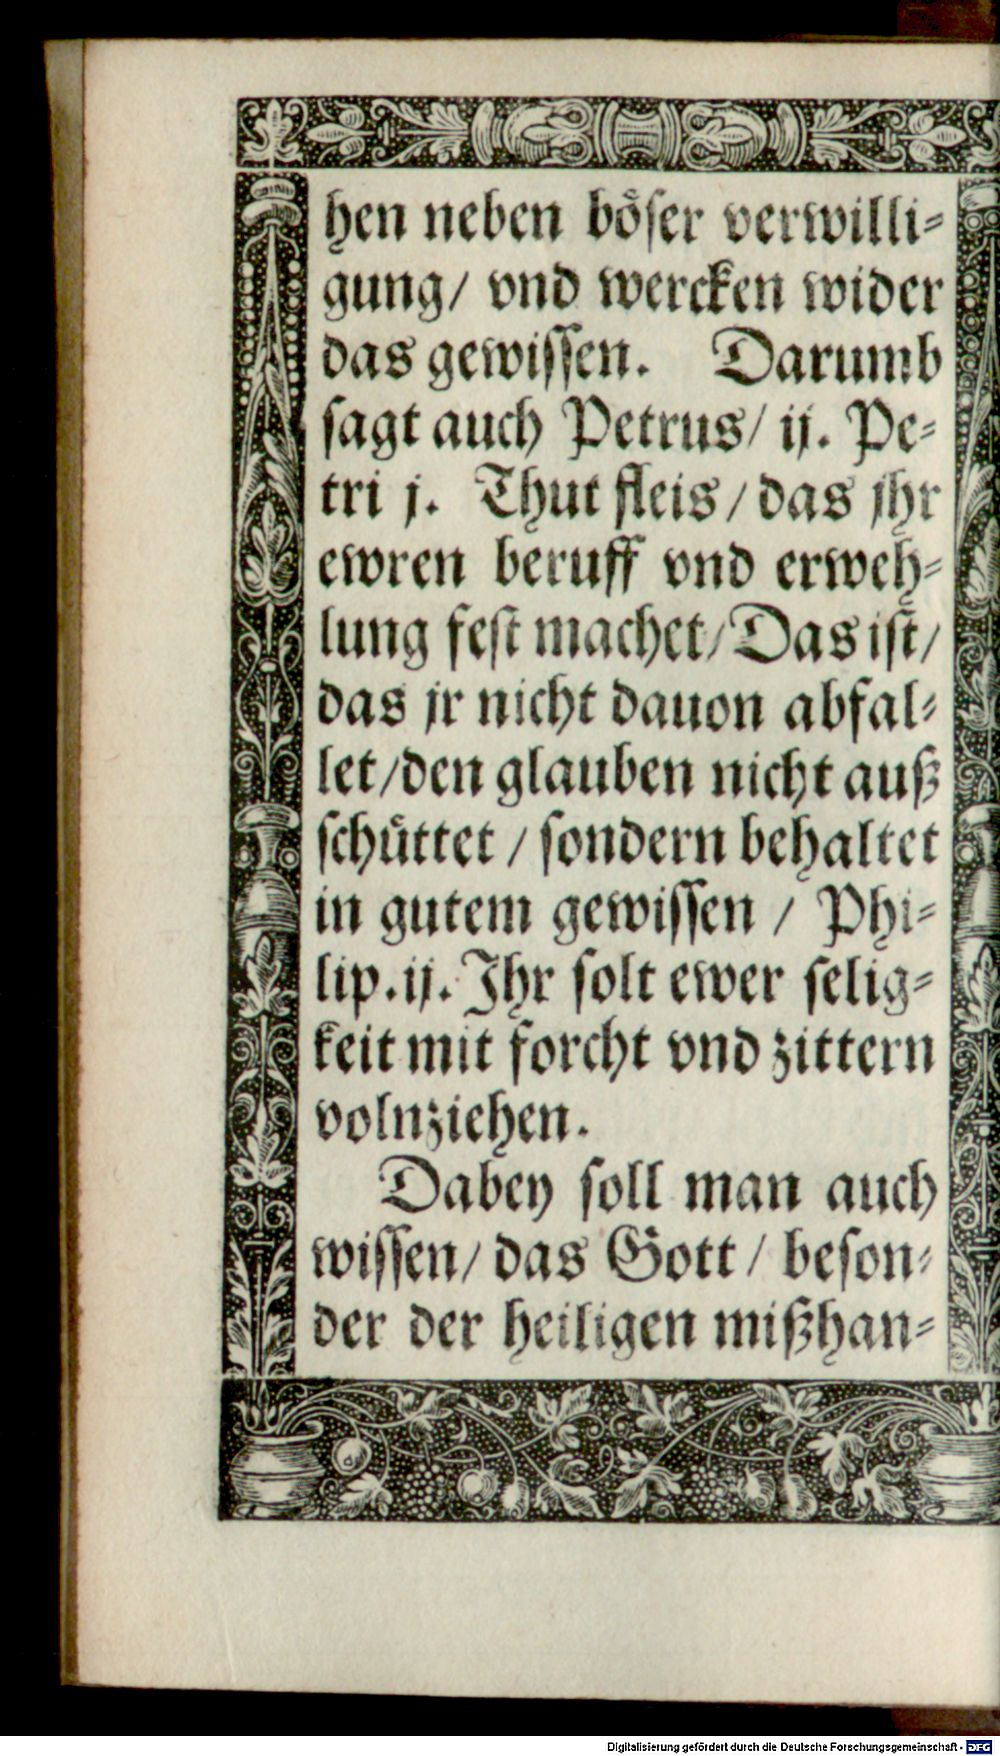 hen neben böser verwilli⸗
gung/ vnd wercken wider
das gewissen. Darumb
sagt auch Petrus/ ij. Pe⸗
tri j. Thut fleis/das jhr
ewren beruff vnd erweh⸗
lung fest machet/Das ist/
das jr nicht dauon abfal⸗
let/den glauben nicht auß
schüttet/sondern behaltet
in gutem gewissen/ Phi⸗
lip.ij. Jhr solt ewer selig⸗
keit mit forcht vnd zittern
volnziehen.
Dabey soll man auch
wissen/das Gott/ beson⸗
der der heiligen mißhan⸗
Digitalisierung gefördert durch die Deutsche Forschungsgemeinschaft - DFG